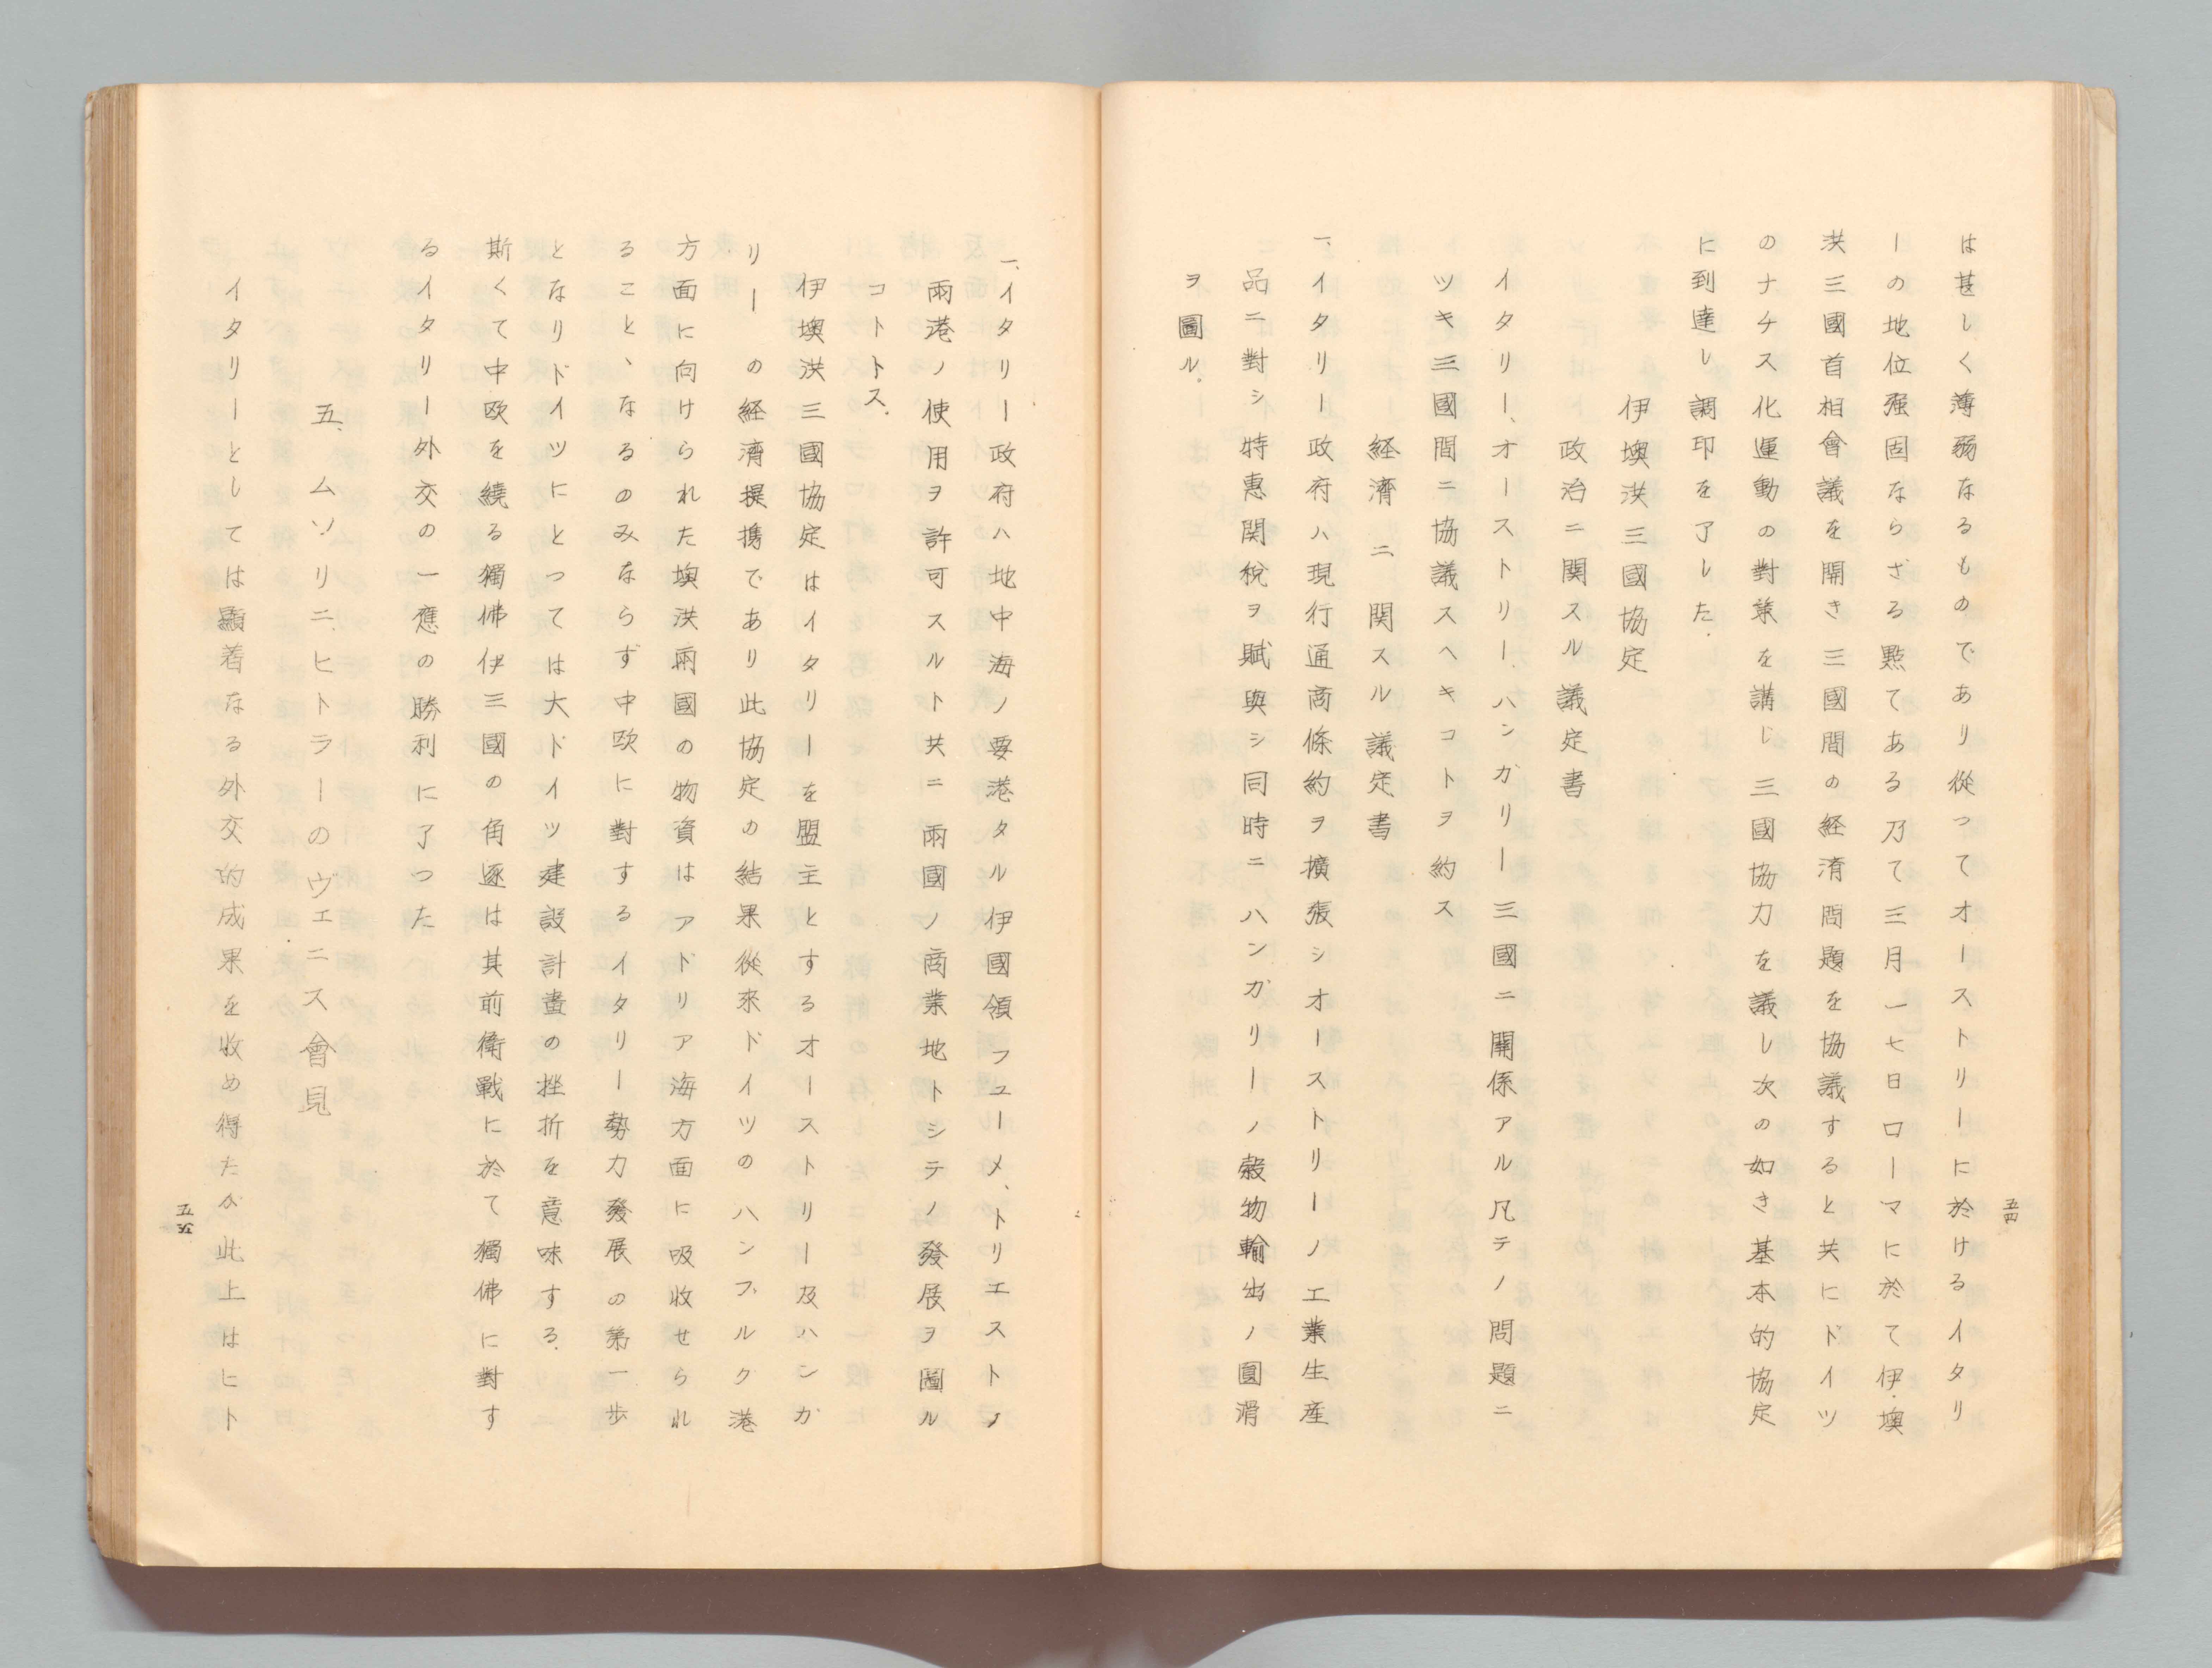 は甚しく薄弱なるものであり從つてオーストリーに於けるイタリ
ーの地位强固ならざる點てある乃て三月一七日ローマに於て伊、墺
洪三國首相會議を開き三國間の経済問題を協議すると共にドイツ
のナチス化運動の對策を講じ三國協力を議し次の如き基本的協定
に到達し調印を了した.
伊墺洪三國協定
政治ニ関スル議定書
イタリー、オーストリー、ハンガリー三國ニ關係アル凡テノ問題ニ
ツキ三國間ニ協議スヘキコトヲ約ス
経濟ニ関スル議定書
一、イタリー政府ハ現行通商條約ヲ擴張シオーストリーノ工業生産
品ニ對シ特惠関稅ヲ賦與シ同時ニハンガリーノ穀物輸出ノ圓滑
ヲ圖ル.
五四
一、イタリー政府ハ地中海ノ要港タル伊國領フューメ、トリエストノ
兩港ノ使用ヲ許可スルト共ニ兩國ノ商業地トシテノ發展ヲ圖ル
コトトス.
伊墺洪三國協定はイタリーを盟主とするオーストリー及ハンガ
リーの経濟提携であり此協定の結果從來ドイツのハンブルク港
方面に向けられた墺洪兩國の物資はアドリア海方面に吸收せられ
ること、なるのみならず中欧に對するイタリー勢力發展の第一步
となりドイツにとつては大ドイツ建設計畫の挫折を意味する.
斯くて中欧を繞る獨佛伊三國の角逐は其前衛戰に於て獨佛に對す
るイタリー外交の一應の勝利に了つた
五、ムソリニ、ヒトラーのヴェニス會見
イタリーとしては顯着なる外交的成果を收め得たか此上はヒト
五五